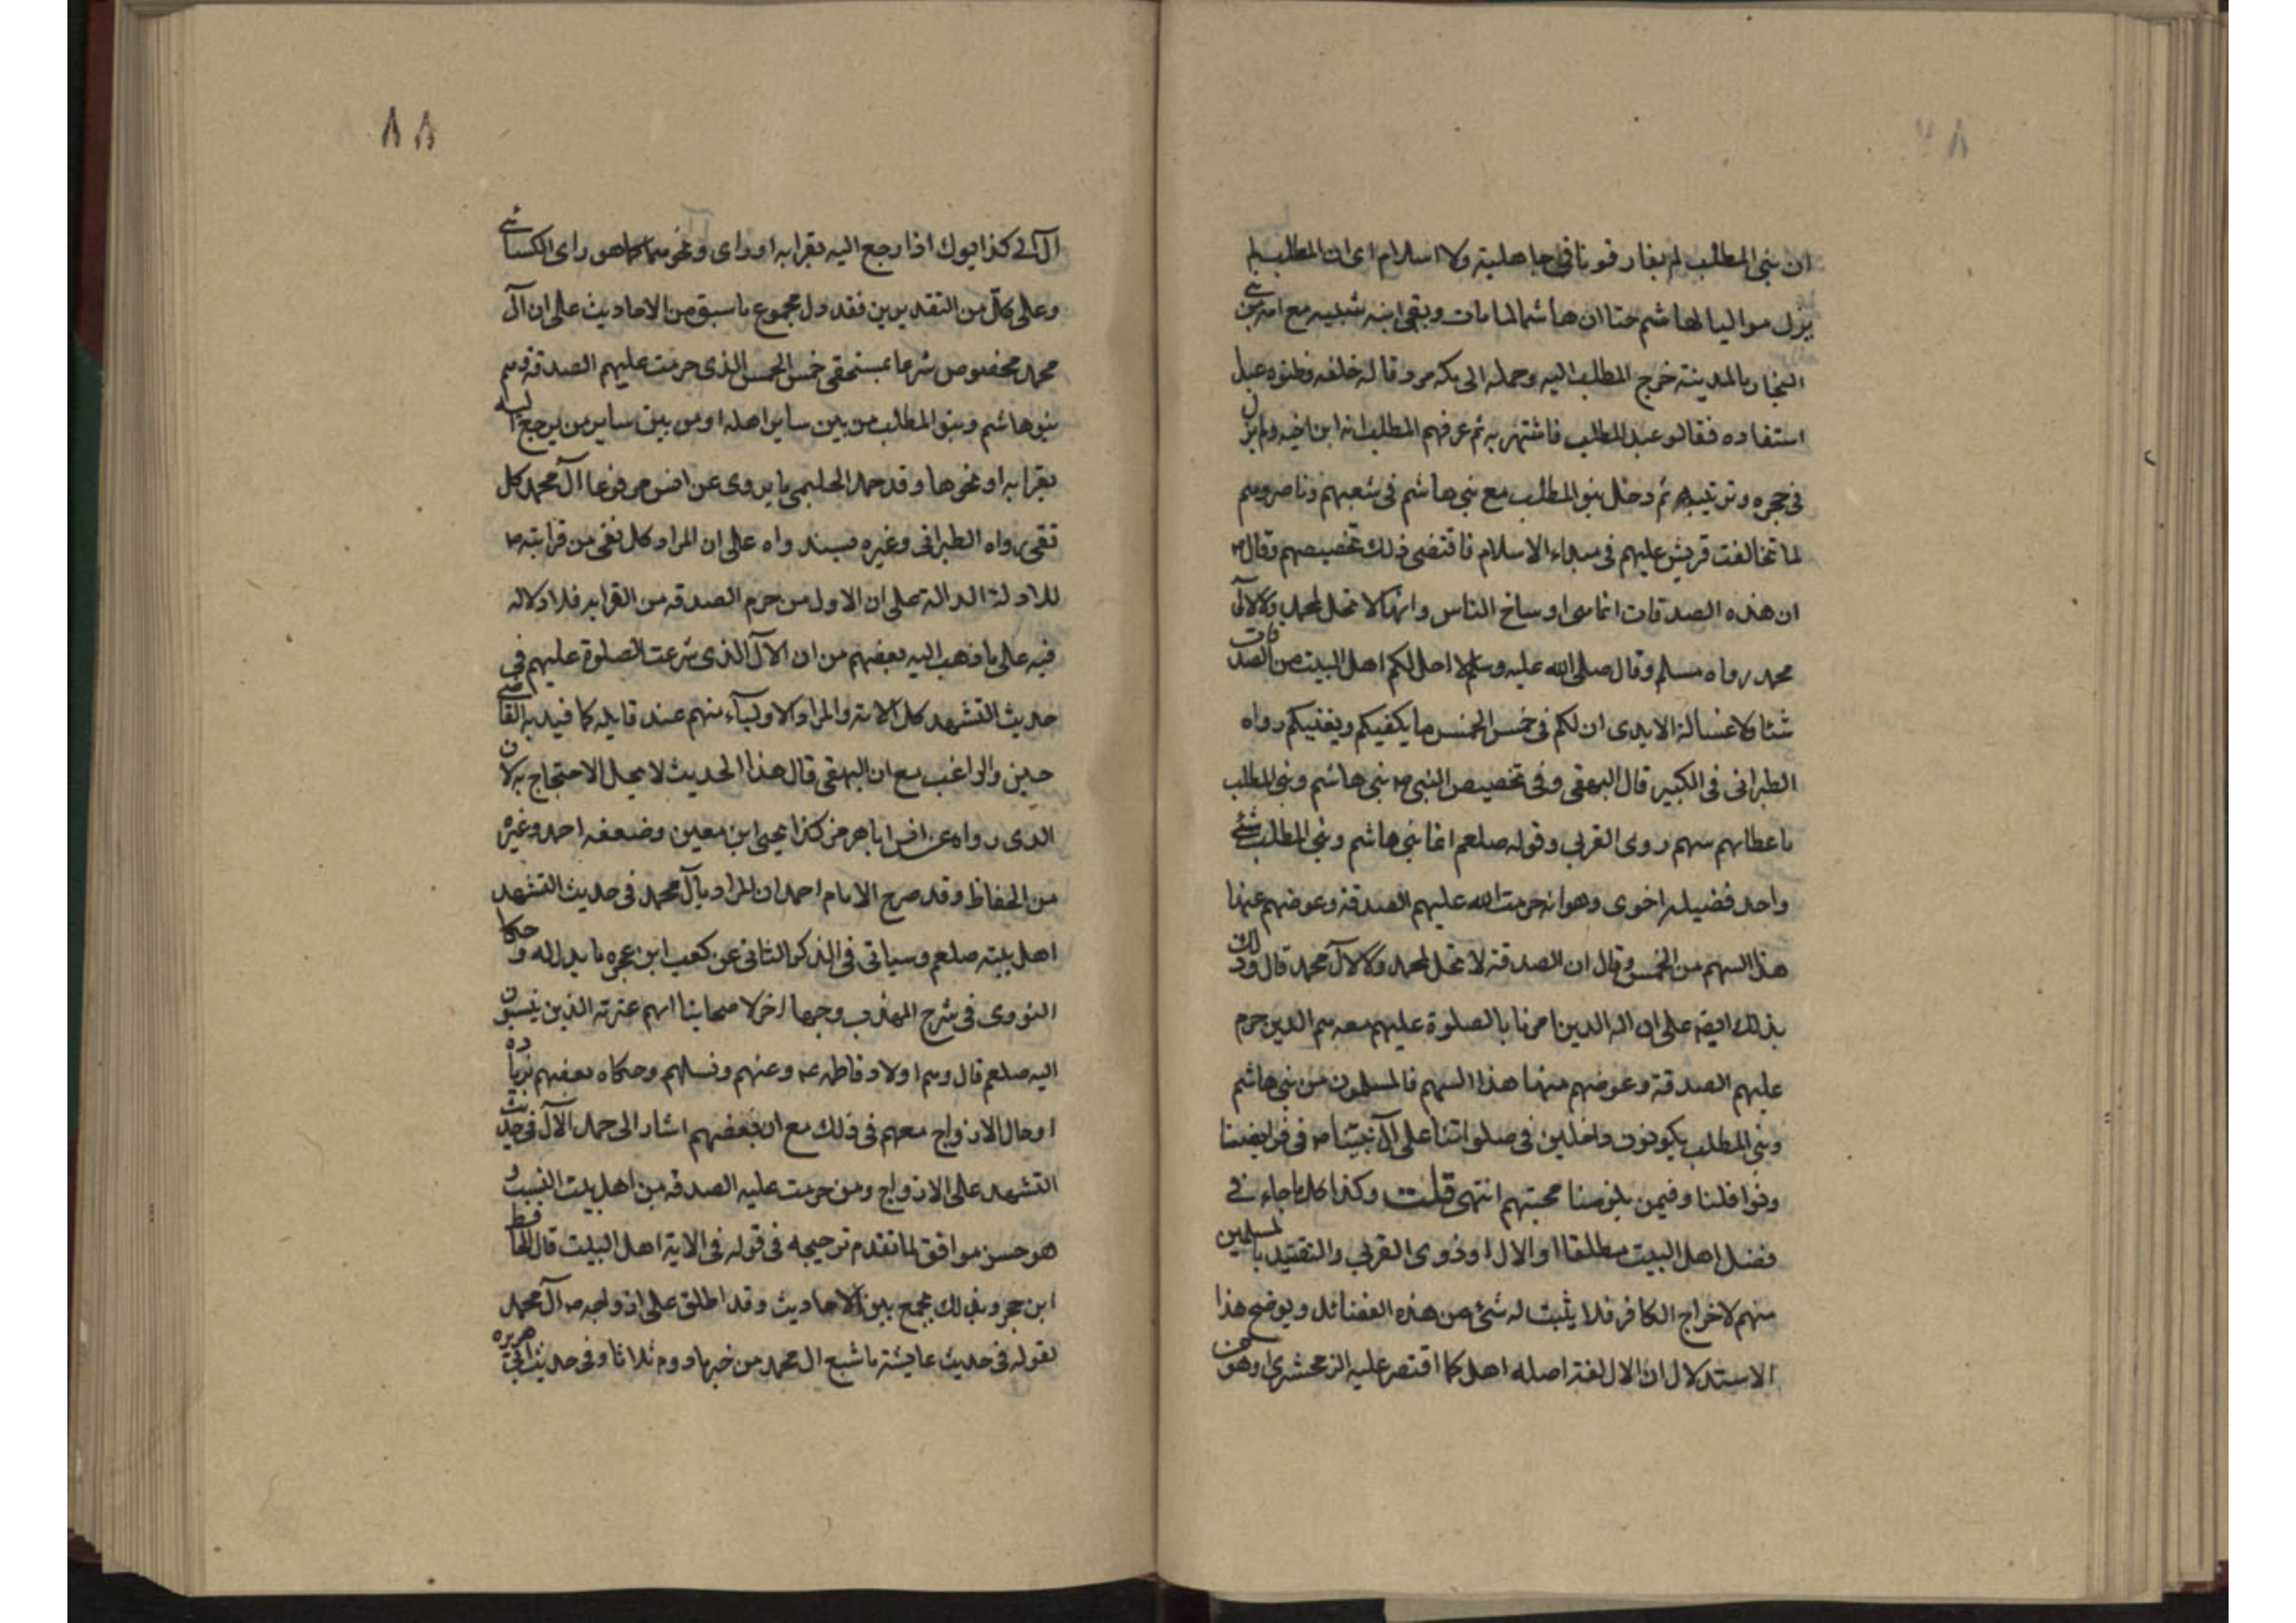 ان بنى المطلب لم يفارقونا فى جاهلية ولا اسلام اى ان المطلب لم
يزل مواليا لهاشم حتا ان هاشما لما مات وبقى ابنه شيبه مع امه من بنى
النجار بالمدينة خرج المطلب اليه وحمله الى مكه مردفا له خلفه فظنوه عبدا
استفاده فقالو عبد المطلب فاشتهر به ثم عرفهم المطلب انه ابن اخيه ولم يزل
فى حجره وتربيته ثم دخل بنو المطلب مع بنى هاشم فى شعبهم وناصروهم
لما تخالفت قريش عليهم فى مبداء الاسلام فاقتضى ذلك تخصيصهم وقال ص
ان هذه الصدقات انما هى اوساخ الناس وانها لا تحل لمحمد ولا لآل
محمد رواه مسلم وقال صلى الله عليه وسلم لا احل لكم اهل البيت من الصدقات
شئا ولا غسالة الايدى ان لكم فى خمس الخمس ما يكفيكم ويغنيكم رواه
الطبرانى فى الكبير قال البهقى وفى تخصيص النبى ص بنى هاشم وبنى المطلب
باعطايهم سهم ذوى القربى وقوله صلعم انما بنى هاشم وبنى المطلب شئ
واحد فضيله اخرى وهو انه حرمت الله عليهم الصدقة وعوضهم عنها
هذا السهم من الخمس وقال ان الصدقة لا تحل لمحمد ولا لآل محمد قال وذلك
بذلك ايضا على ان اله الدين امرنا بالصلوة عليهم معه هم الدين حرم
عليهم الصدقة وعوضهم منها هذا السهم فالمسلمون من بنى هاشم
وبنى المطلب يكونون داخلين فى صلواتنا على آل نبيّنا ص فى فرايضنا
ونوافلنا وفيمن يلزمنا محبتهم انتهى قلت وكذا كل ما جاء فى
فضل اهل البيت مطلقا او الال او ذوى القربى والتقييد بالمسلمين
منهم لاخراج الكافر فلا يثبت له شئ من هذه الفضائل ويوضح هذا
الاستدلال ان الال لغة اصله اهل كما اقتصر عليه الزمحشرى او هو من
آل الى كذا يوك اذا رجع اليه بقرابه او راى ونحو هما كما هو راى الكسائى
وعلى كلّ من التقديرين فقد دل مجموع ما سبق من الاحاديث على ان آل
محمد مخصوص شرعا بمستحقى خمس الخمس الذى حرمت عليهم الصدقة وهم
بنو هاشم وبنو المطلب من بين ساير اهله او من بين ساير من يرجع اليه
بقرابه او نحوها وقد حمل الحليمى ما يروى عن انس مرفوعا آل محمد كل
تقى رواه الطبرانى وغيره بسند واه على ان المراد كل تقى من قرابته ص
للادلة الدالة على ان الاول من حرم الصدقه من القرابه فلا دلاله
فيه على ما ذهب اليه بعضهم من ان الآل الذى شرعت الصلوة عليهم فى
حديث التشهد كل الامة والمراد الاولياء منهم عند قايله كما قيد به القاضى
حين والراغب مع ان البهقى قال هذا الحديث لا يحل الاحتجاج به لان
الدى رواه عن انس اباهرمز كذا يحيى ابن معين وضعفه احمد وغيره
من الحفاظ وقد صرح الامام احمد ان المراد بآل محمد فى حديث التشهد
اهل بيته صلعم وسياتى فى الذكر الثانى عن كعب ابن عجره ما يدل له وحكا
النووى فى شرح المهذب وجها اخر لاصحابنا انهم عترته الذين ينسبون
اليه صلعم قال وهم اولاد فاطمه عم وعنهم ونسلهم وحكاه بعضهم بزيادة
ادحال الازواج معهم فى ذلك مع ان بعضهم اشار الى حمل الآل فى حديث
التشهد على الازواج ومن حرمت عليه الصدقه من اهل بيت النسب و
هو حسن موافق لما تقدم ترجيحه فى قوله فى الاية اهل البيت قال الحافظ
ابن حجر وبذلك يجمع بين الاحاديث وقد اطلق على ازواجه ص آل محمد
لقوله فى حديث عايشة ما شبع ال محمد من خبز مادوم ثلاثا وفى حديث ابى هريره
٨٨